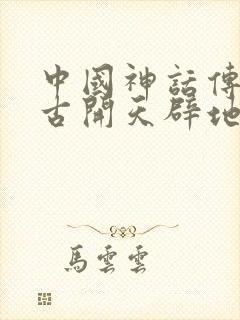 中國神話傳
古開天辟地
馬雲雲